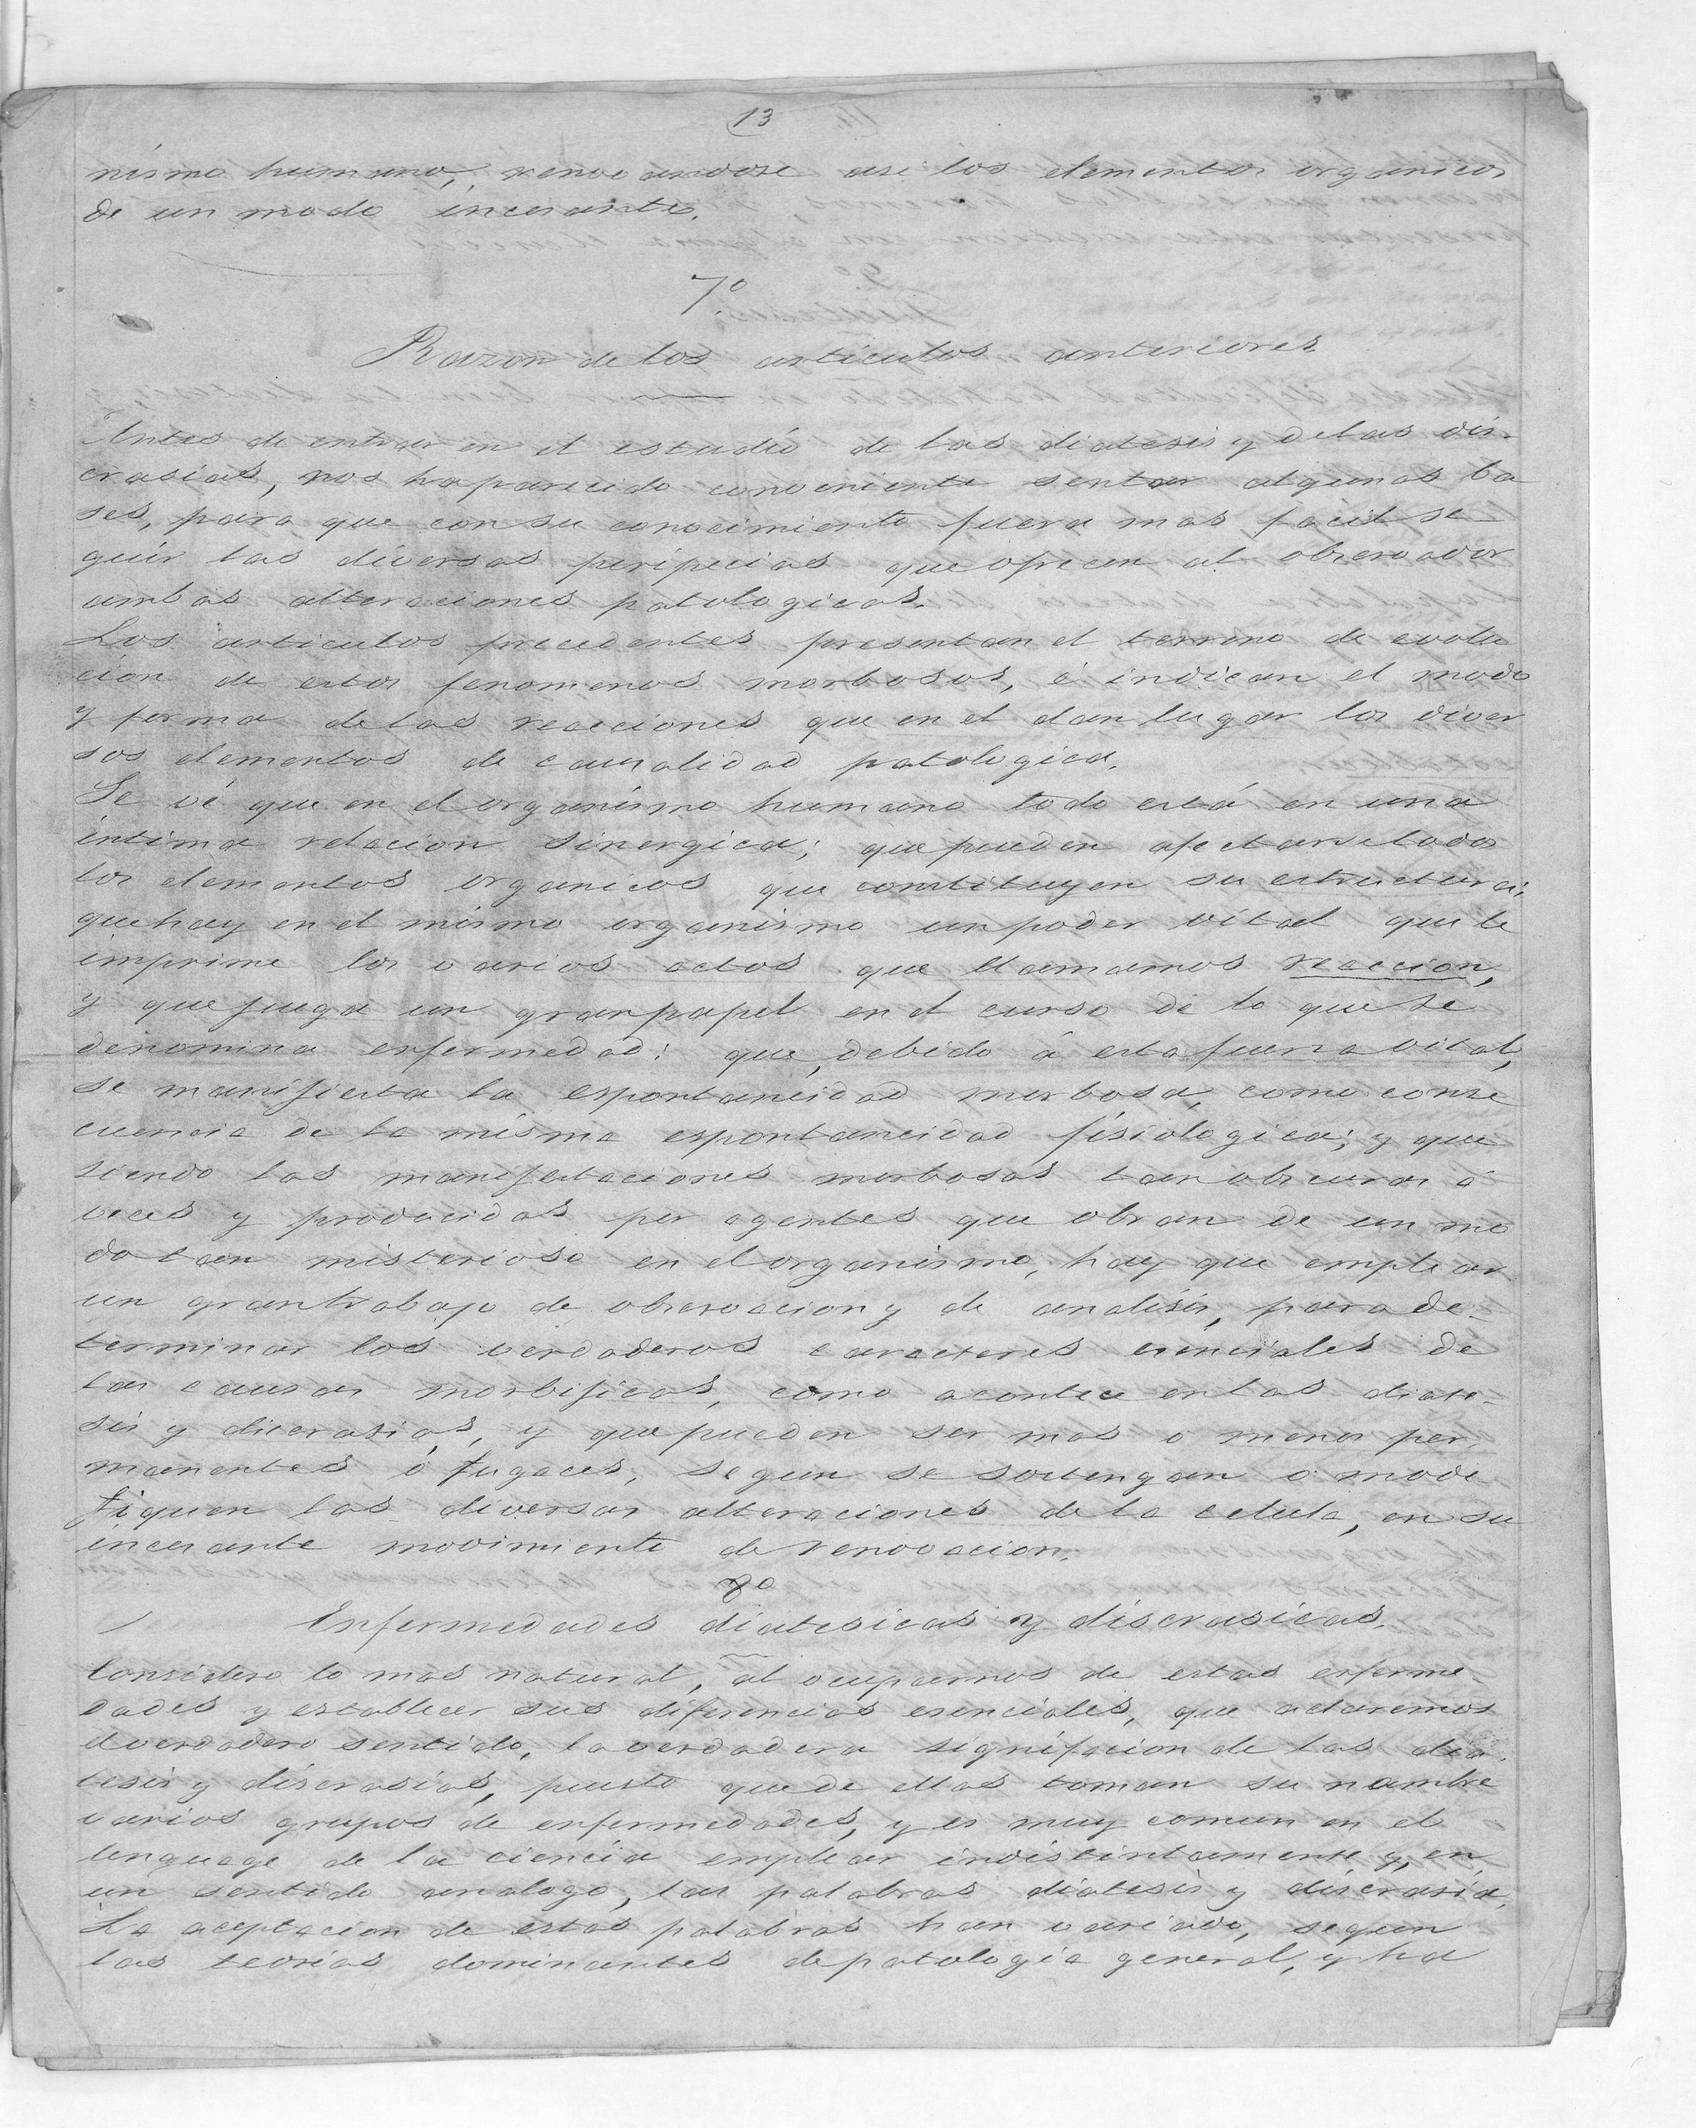 13
nismo humano, renovandose asi los elementos organicos
de un modo incesante.
7.º
Razon de los articulos anteriores.
Antes de entrar en el estudio de las diatesis y de las dis-
crasias, nos ha parecido conveniente sentar algunas ba
ses, para que con su conocimiento fuera mas facil se-
guir las diversas peripecias que ofrecen al observador
ambas alteraciones patologicas.
Los articulos precedentes presentan el terreno de evolu
cion de estos fenomenos morbosos, é indican el modo
y forma de las reacciones que en el dan lugar los diver
sos elementos de causalidad patologica.
Se vé que en el organismo humano todo está en una
intima relacion sinergica; que pueden afectarse todos
los elementos organicos que constituyen su estructura;
que hay en el mismo organismo un poder vital que le
imprime los varios actos que llamamos reaccion,
y que juega un gran papel en el curso de lo que se
denomina enfermedad: que, debido á esta fuerza vital,
se manifiesta la espontaneidad morbosa, como conse
cuencia de la misma espontaneidad fisiologica; y que
siendo las manifestaciones morbosas tan obscuras á
veces y producidas por agentes que obran de un mo
do tan misterioso en el organismo, hay que emplear
un gran trabajo de observacion y de analisis, para de-
terminar los verdaderos caracteres esenciales de
las causas morbificas, como acontece en las diate-
sis y discrasias, y que pueden ser mas o menos per-
manentes ó fugaces, segun se sostengan o modi
fiquen las diversas alteraciones de la celula, en su
incesante movimiento de renovacion.
8º
Enfermedades diatesicas y discrasicas.
Considero lo mas natural, al ocuparnos de estas enferme-
dades y establecer sus diferencias esenciales, que aclaremos
el verdadero sentido, la verdadera signifacion de las dia-
tesis y discrasias, puesto que de ellas toman su nombre
varios grupos de enfermedades, y es muy comun en el
lenguage de la ciencia emplear indistintamente y, en
un sentido analogo, las palabras diatesis y discrasia.
La aceptacion de estas palabras han variado, segun
las teorias dominantes de patologia general, y ha